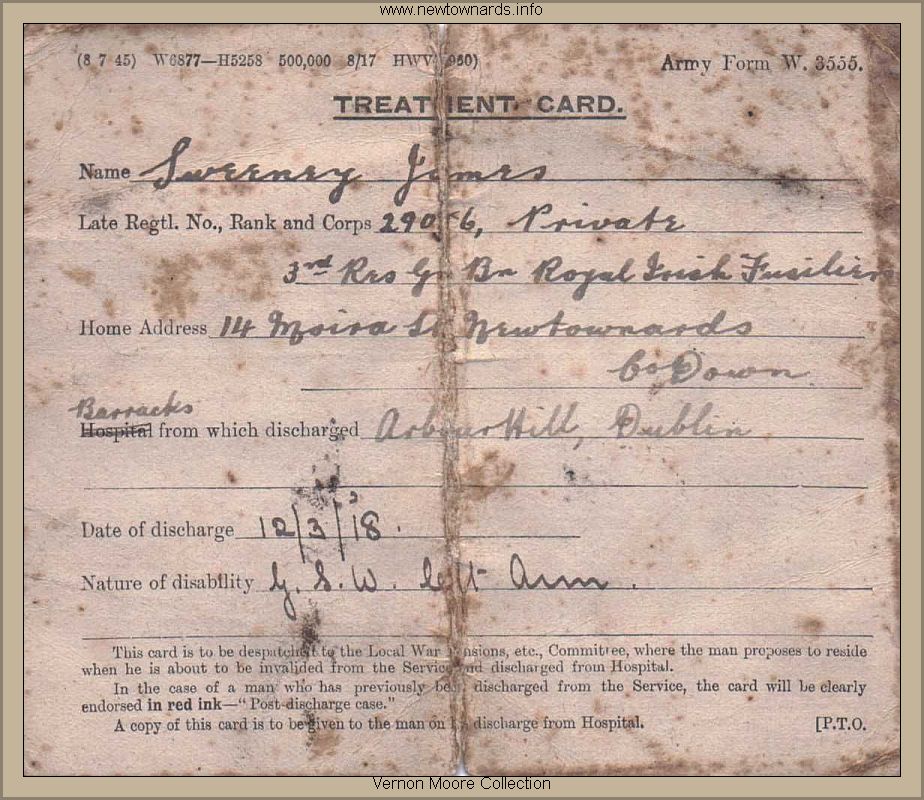 www.newtownards.info
(8 7 45) W6877—H5258 500,000 8/17 HWV 960)
Army Form W. 3555.
TREATMENT CARD.
Name Sweeney James
Late Regtl. No., Rank and Corps 290 6, Private
3rd Res Bn Royal Irish Fusiliers
Home Address 14 Moira St Newtownards
Co Down
Barracks
Hospital from which discharged Arbour Hill, Dublin
Date of discharge 12/3/18.
Nature of disability G. S. W. left Arm.
This card is to be despatched to the Local War Pensions, etc., Committee, where the man proposes to reside
when he is about to be invalided from the Service and discharged from Hospital.
In the case of a man who has previously been discharged from the Service, the card will be clearly
endorsed in red ink—"Post-discharge case."
A copy of this card is to be given to the man on his discharge from Hospital.
[P.T.O.
Vernon Moore Collection